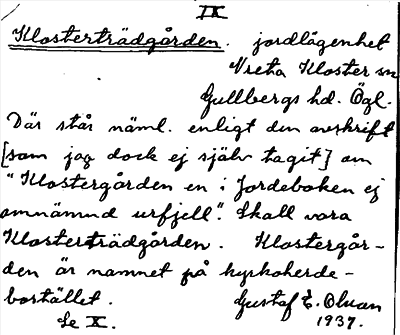 IX
Klosterträdgården. jordlägenhet
Vreta Kloster sn
Gullbergs hd. Ögl.
Där står näml. enligt den avskrift
[som jag dock ej själv tagit] om
"Klostergården en i Jordeboken ej
omnämnd urfjell". Skall vara
Klosterträdgården. Klostergår-
den är namnet på kyrkoherde-
bostället. Gustaf E. Olsson
Se X. 1937.